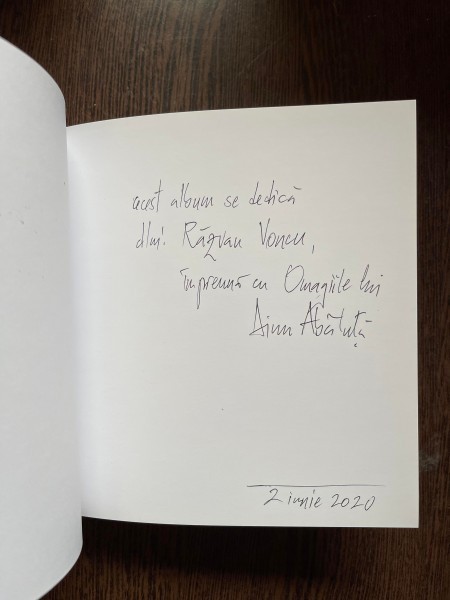 acest album se dedică
dlui Răzvan Voncu,
împreună cu Omagiile lui
Dinu Abăluță
2 iunie 2020